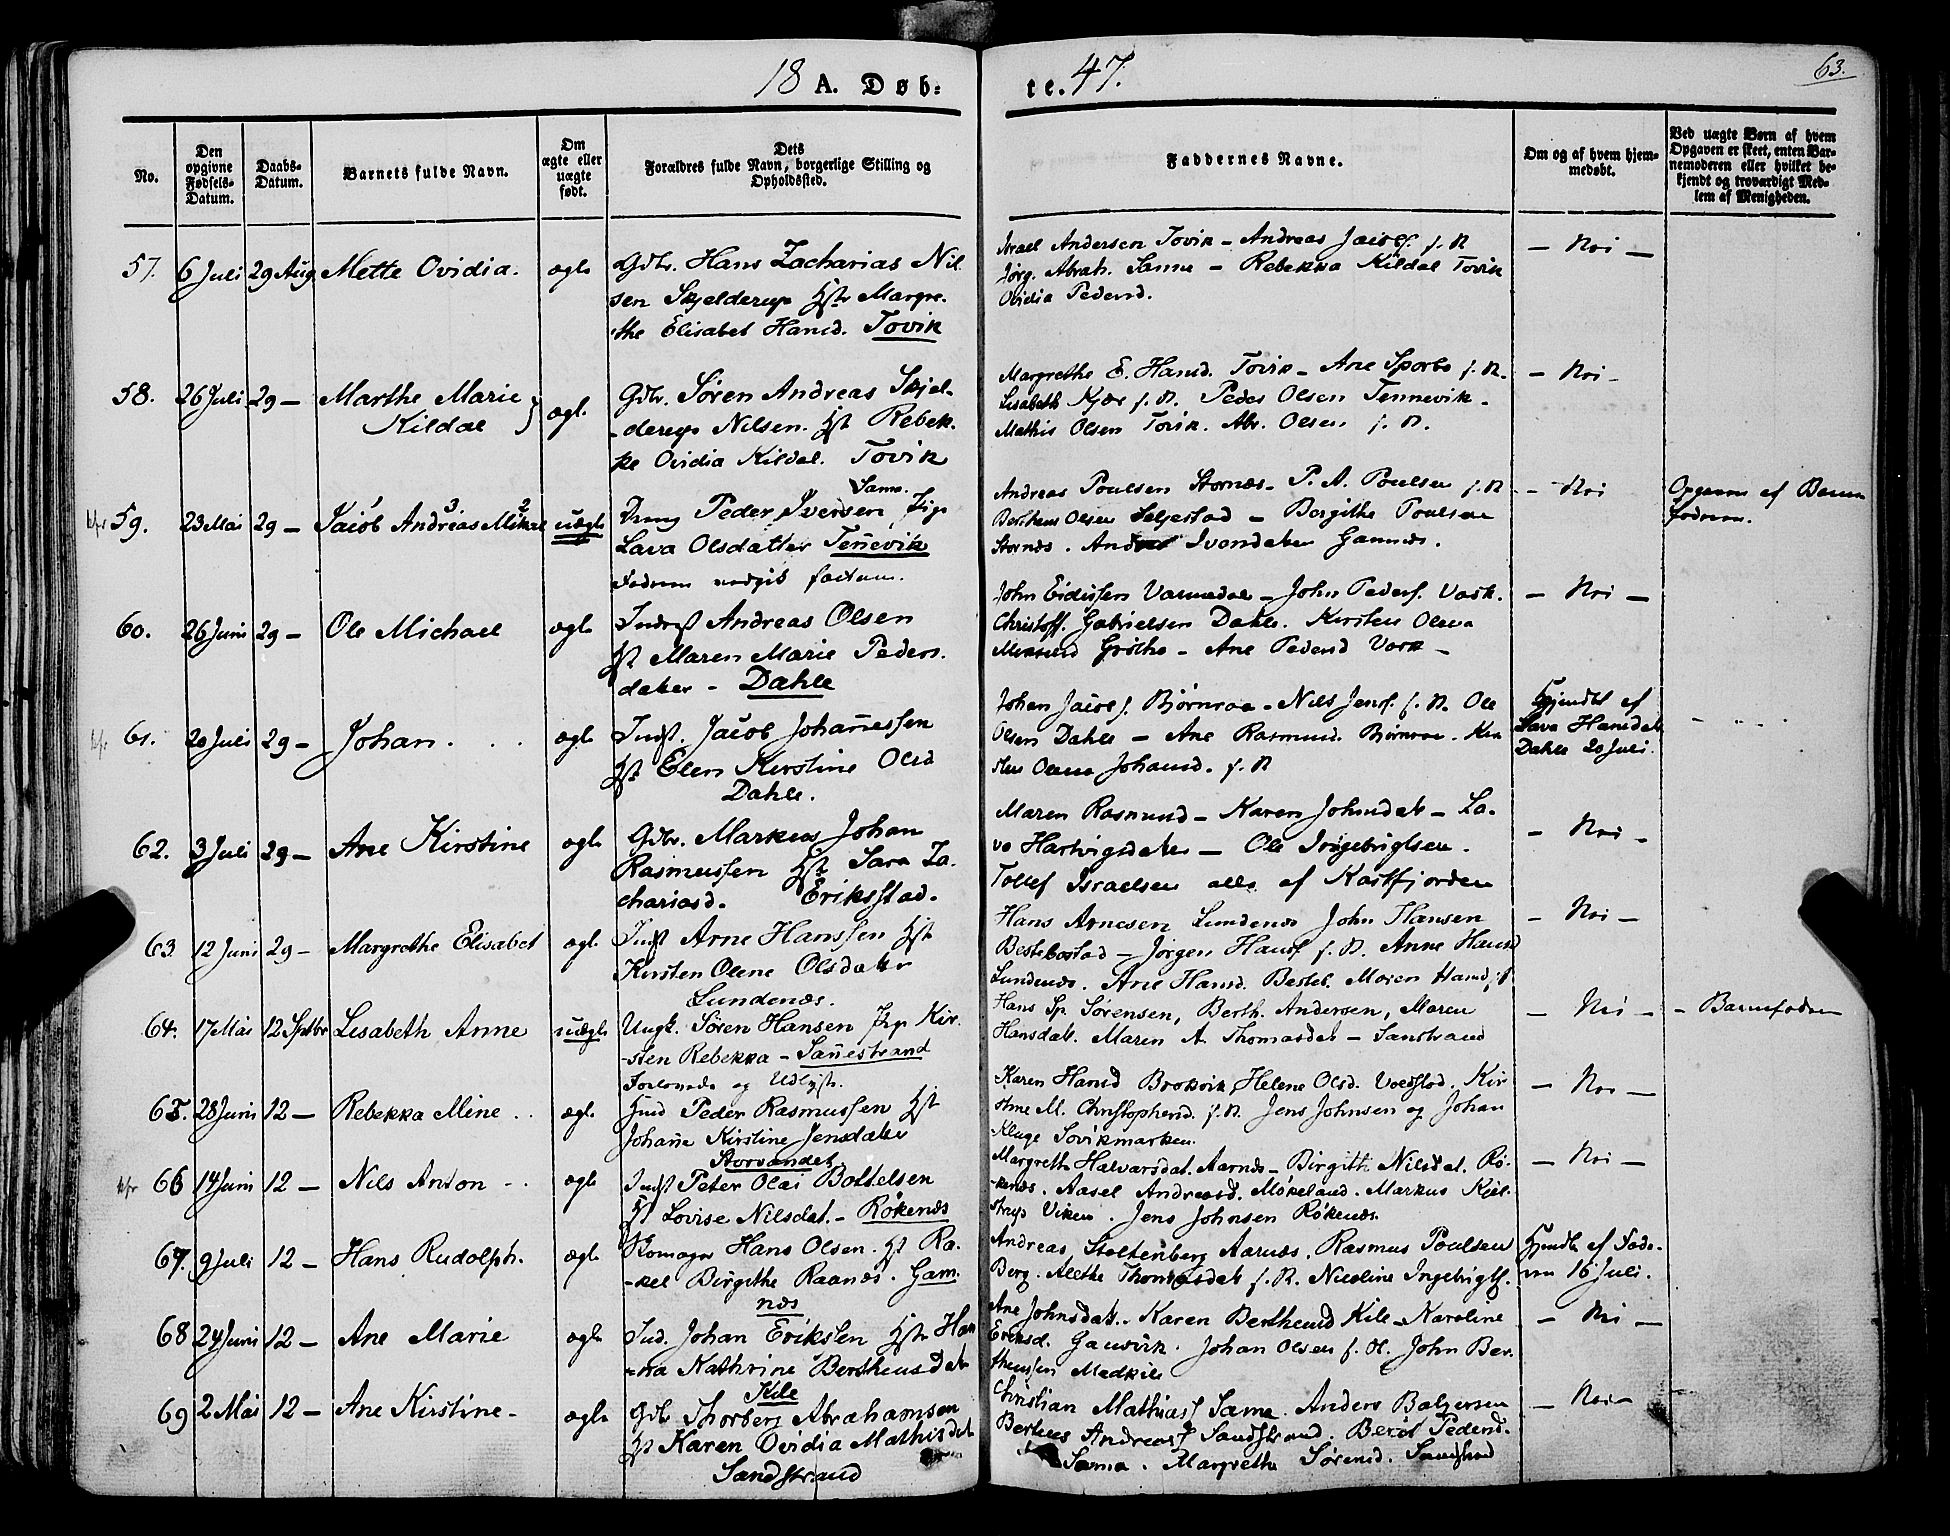 18 A. Døb:
te. 47.
63.
No.
Den opgivne Fødsels-Datum.
Daabs-Datum.
Barnets fulde Navn.
Om ægte eller uægte født.
Dets Forældres fulde Navn, borgerlige Stilling og Opholdssted.
Faddernes Navne.
Om og af hvem hjemmedøbt.
Ved uægte Børn af hvem Opgaven er skeet, enten Barnemoderen eller hvilket bekjendt og troværdigt Medlem af Menigheden.
57. 6 Juli 29 Aug. Mette Ovidia. ægte
Gdbr. Hans Zacharias Nil-
sen Skjelderup Hstr Margre-
the Elisabet Hansd. Tovik
Israel Andersen Tovik – Andreas Jacobs. f. N
Jørg. Abrah. Sanne – Rebekka Kildal Tovik
Ovidia Pedersd.
– Nei –
58. 26 Juli 29 – Marthe Marie
Kildal ægte
Gdbr. Søren Andreas Skjel-
derup Nilsen. Hst Rebek-
ke Ovidia Kildal. Tovik
Margrethe E. Hansd. Tovik – Ane Sporbo f. N.
Lisabeth Kjær f. N. Peder Olsen Tennevik –
Mathis Olsen Tovik. Abr. Olsen f. N.
– Nei –
59. 23 Mai 29 – Jacob Andreas Mikal uægte
Ung Peder Iversen Sama. Pig.
Lava Olsdatter Tennevik
Andreas Poulsen Stornæs – P. A. Poulsen f. N
Bertheus Olsen Seljestad – Bergithe Poulsen
Stornæs. Iversdatter Gannæs.
– Nei
Opgaven af Barne
faderen.
60. 26 Juni 29 – Ole Michael ægte
Inderst Andreas Olsen
Hst Maren Marie Peders-
datter – Dahle
John Eidissen Varmedal – John Peders. Vask.
Christoff. Gabrielsen Dahle. Kirsten Olena
Grøtho – Ane Pedersd Vask –
– Nei –
61. 20 Juli 29 – Johan. ægte
Indst. Jacob Johannessen
Hst Elen Kirstine Olsd
Dahle.
Johan Jacobs. Bjørnraa – Nils Jens. f. N. Ole
Olsen Dahle – Ane Rasmusd. Bjørnraa. Kir
sten Olena Johansd. f. N
Hjemdbt af
Lava Hansdat
Dahle 20 Juli.
62. 3 Juli 29 – Ane Kirstine ægte
Gdbr. Markus Johan
Rasmussen Hst Sara Za-
chariasd. Eriksstad.
Maren Rasmusd – Karen Johnsdat – La-
va Hartvigsdatter – Ole Ingebrigtsen.
Tollef Israelsen alle af Kastfjorden
– Nei –
63 12 Juni 29 – Margrethe Elisabet ægte
Indst Arne Hanssen Hst
Kirsten Olene Olsdatter
Lundenæs.
Hans Arnesen Lundenæs John Hansen
Bestebostad – Jørgen Hans. f. N. Anne Hansd
Lundenæs. Ane Hansd. Besteb. Maren Hansd. f. N
– Nei –
64. 17 Mai 12 Sptbr Lisabeth Anne uægte
Ungk. Søren Hansen Pig. Kir-
sten Rebekka – Sannestrand
Forlovede og Udlyste.
Hans Sp. Sørensen, Berth. Andersen, Maren
Hansdat. Maren A. Thomasdat – Sanstrand
– Nei –
– Barnefaderen
65. 28 Juni 12 – Rebekka Mine ægte
Huusd Peder Rasmussen Hst
Johanne Kirstine Jensdatter
Storvandet
Karen Hansd Brokvik Helene Olsd. Voldstad. Kir-
stine M. Christophersd. f. N. Jens Johnsen og Johan
Kluge Sovikmarken.
– Nei –
66 14 Juni 12 – Nils Anton ægte
Indst Peter Olai Bottelsen
Hst Lovise Nilsdat. – Røkenæs
Margrethe Halvarsdat. Aarnæs – Birgitte Nilsdat. Rø-
kenæs. Aasel Andreasd. Møkeland. Markus Kjel-
strup Viken. Jens Johnsen Røkenæs.
– Nei –
67. 9 Juli 12 – Hans Rudolph. ægte
Skomager Hans Olsen. Hst Ra-
kel Birgithe Raanæs. Gam-
næs
Andreas Stoltenberg Aarnæs. Rasmus Poulsen
Berg. Alethe Thomasdat f. N. Nicoline Ingebrigts.
Hjemdbt af Fade-
ren 16 Juli.
68 24 Juni 12 – Ane Marie ægte
Ind. Johan Eriksen Hstr Han
na Kathrine Bertheusdat
Kile
Ane Johnsdat. Karen Bertheusd Kile – Karoline
Eriksd. Gausvik. Johan Olsen f. N. John Ber-
theussen Medkile
– Nei –
69 2 Mai 12 – Ane Kirstine – ægte
Gdbr Thorberg Abrahamsen
Hst Karen Ovidia Mathisdat
Sandstrand
Christian Mathias. Sama. Anders Balzersen
Bertheus Andreas. Sandstrand. Berit Pedersd.
Sama. Margrethe Sørensd. Sandstrand
– Nei –